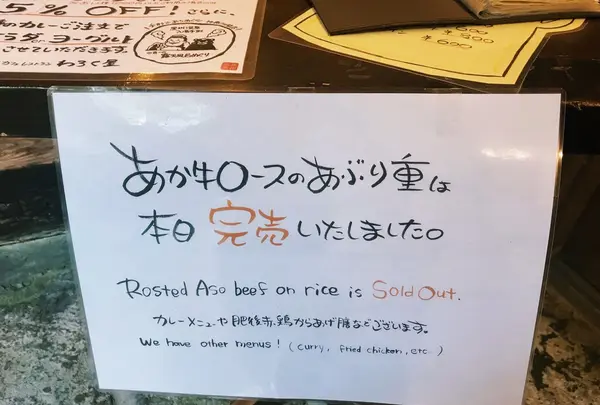 5% OFF! さらに、
和カレーご注文で
ヨーグルト
させていただきます。
わろく屋
¥600
あか牛ロースのあぶり重は
本日 完売 いたしました。
Rosted Aso beef on rice is Sold Out.
カレーメニューや肥後赤鶏からあげ膳などございます。
We have other menus! (curry, fried chicken, etc...)